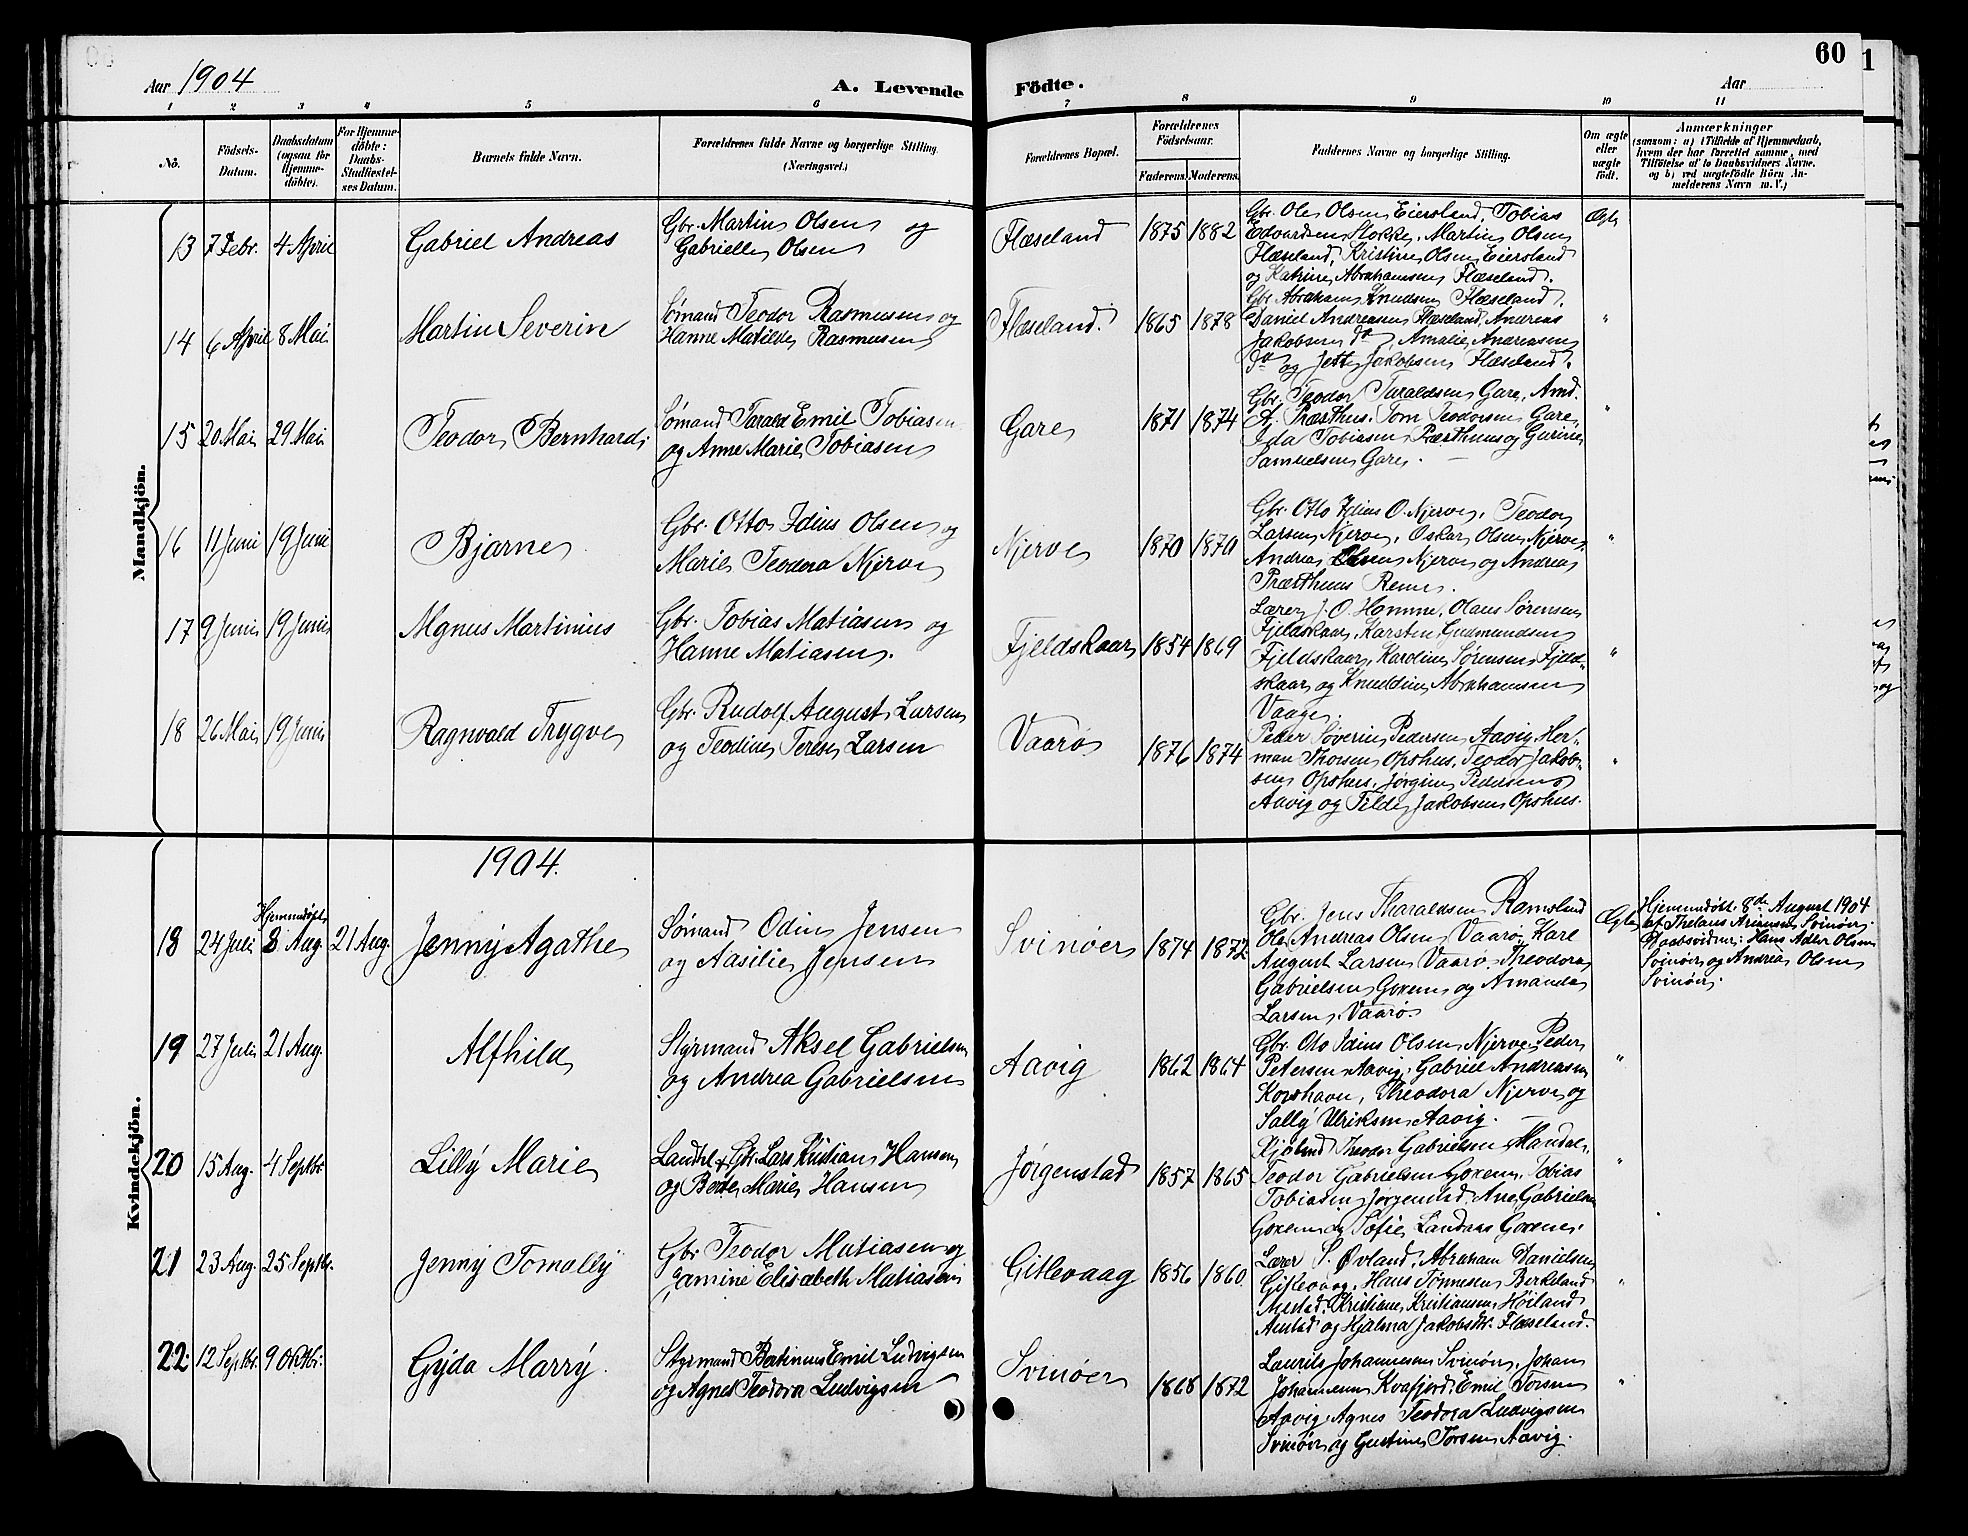 Aar 1904
A. Levende Födte.
60
Aar
1 2 3 4 5 6 7 8 9 10 11
No.
Födsels-
Datum.
Daabsdatum
(ogsaa for
Hjemme-
döbte).
For Hjemme-
döbte:
Daabs-
Stadfæstel-
ses Datum.
Barnets fulde Navn.
Forældrenes fulde Navne og borgerlige Stilling
(Næringsvei.)
Forældrenes Bopæl.
Forældrenes
Födselsaar.
Faderens. Moderens.
Faddernes Navne og borgerlige Stilling.
Om ægte
eller
uægte
født.
Anmærkninger
(saasom: a) i Tilfælde af Hjemmedaab,
hvem der har forrettet samme, med
Tilföielse af to Daabsvidners Navne.
og b) ved uægtefödte Börn An-
melderens Navn m. V.)
Mandkjön.
13 7 Febr. 4 April
Gabriel Andreas
Gbr. Martin Olsen og
Gabrielle Olsen
Flæseland
1875 1882
Gbr. Ole Olsen Eiersland, Tobias
Edvardsen Stokke, Martin Olsen
Flæseland, Kristine Olsen Eiersland
og Katrine Abrahamsen Flæseland.
Ægte
14 6 April 8 Mai
Martin Severin
Sømand Teodor Rasmussen og
Hanne Matilde Rasmussen
Flæseland.
1865 1878
Gbr. Abraham Knudsen Flæseland.
Daniel Andreasen Flæseland, Andreas
Jakobsen do, Amalie Andreasen
do og Jette Jakobsen Flæseland.
"
15 20 Mai 29 Mai
Teodor Bernhard
Sømand Tarald Emil Tobiasen
og Anne Marie Tobiasen
Gare
1871 1874
Gbr. Teodor Taraldsen Gare, And.
A. Præsthus. Tom Teodorsen Gare,
Ida Tobiasen Præsthus og Gurine
Samuelsen Gare.
"
16 11 Juni 19 Juni
Bjarne
Gbr. Otto Idius Olsen og
Marie Teodora Njerve
Njerve
1870 1870
Gbr. Otto Idius O. Njerve, Teodor
Larsen Njerve, Oskar Olsen Njerve.
Andrea Olsen Njerve og Andrea
Præsthuus Reme.
"
17 9 Juni 19 Juni
Magnus Martinius
Gbr. Tobias Matiasen og
Hanne Matiasen.
Fjeldskaar
1854 1869
Lærer J. O. Homme, Olaus Sørensen
Fjeldskaar, Karsten Gudmundsen
Fjeldskaar, Karoline Sørensen Fjeld-
skaar og Knuddine Abrahamsen
Vaage.
"
18 26 Mai 19 Juni
Ragnvald Trygve
Gbr. Rudolf August Larsen
og Teodine Terese Larsen
Vaarø
1876 1874
Peder Severin Pedersen Aavig, Her-
man Thorsen Opshus, Teodor Jakob-
sen Opshus, Jørgine Pedersen
Aavig og Tilde Jakobsen Opshus.
"
1904.
Kvindekjön.
18 24 Juli
Hjemmedøbt
8 Aug. 21 Aug.
Jenny Agathe
Sømand Odin Jensen
og Aasilie Jensen
Svinøer
1874 1872
Gbr. Jens Tharaldsen Ramsland
Ole Andreas Olsen Vaarø, Karl
August Larsen Vaarø. Theodora
Gabrielsen Goxem og Amanda
Larsen, Vaarø
Ægte
Hjemmedøbt 8de August 1904
af Svinøer
Daabsvidner: Hans Adler Olsen
Svinøer og Andrea Olsen
Svinøer.
19 27 Juli 21 Aug.
Alfhild
Styrmand Aksel Gabrielsen
og Andrea Gabrielsen
Aavig
1862 1864
Gbr. Oto Idius Olsen Njerve, Peder
Petersen Aavig, Gabriel Andreasen
Korshavn, Theodora Njerve og
Sally Ulriksen Aavig.
"
20 15 Aug. 4 Septbr
Lilly Marie
Landhl. + Gbr. Lars Kristian Hansen
og Berte Marie Hansen
Jørgenstad
1857 1865
Theodor Gabrielsen Mandal,
Teodor Gabrielsen Goxem, Tobias
Tobiasen Jørgenstad, Ane Gabrielsen
Goxem og Sofie Landaas Goxem.
"
21 23 Aug. 25 Septbr.
Jenny Tomally
Gbr Teodor Matiasen og
Jamine Elisabeth Matiasen
Gitlevaag
1856 1860.
Lærer S. Øvland, Abraham Danielsen
Gitlevaag, Hans Tønnesen Birkeland
Austad, Kristiane Kristiansen Høiland
Austad og Hjalma Jakobsdtr. Flæseland.
"
22 12 Septbr. 9 Oktbr.
Gyda Marry
Styrmand Bertinius Emil Ludvigsen
og Agnes Teodora Ludvigsen
Svinøer
1868 1872
Laurits Johannesen Svinøer, Johan
Johannesen Kvafjord, Emil Torsen
Aavig, Agnes Teodora Ludvigsen
Svinøer og Gustine Torsen Aavig.
"